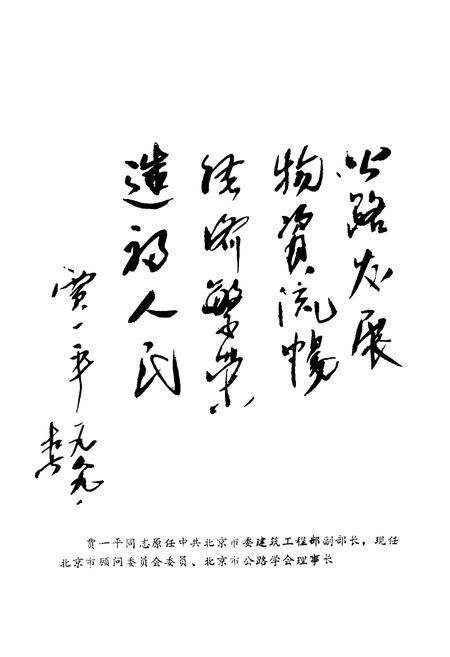 公路发展
物资流畅
经济繁荣
造福人民
贾一平
一九八九.
贾一平同志原任中共北京市委建筑工程部副部长，现任
北京市顾问委员会委员、北京市公路学会理事长